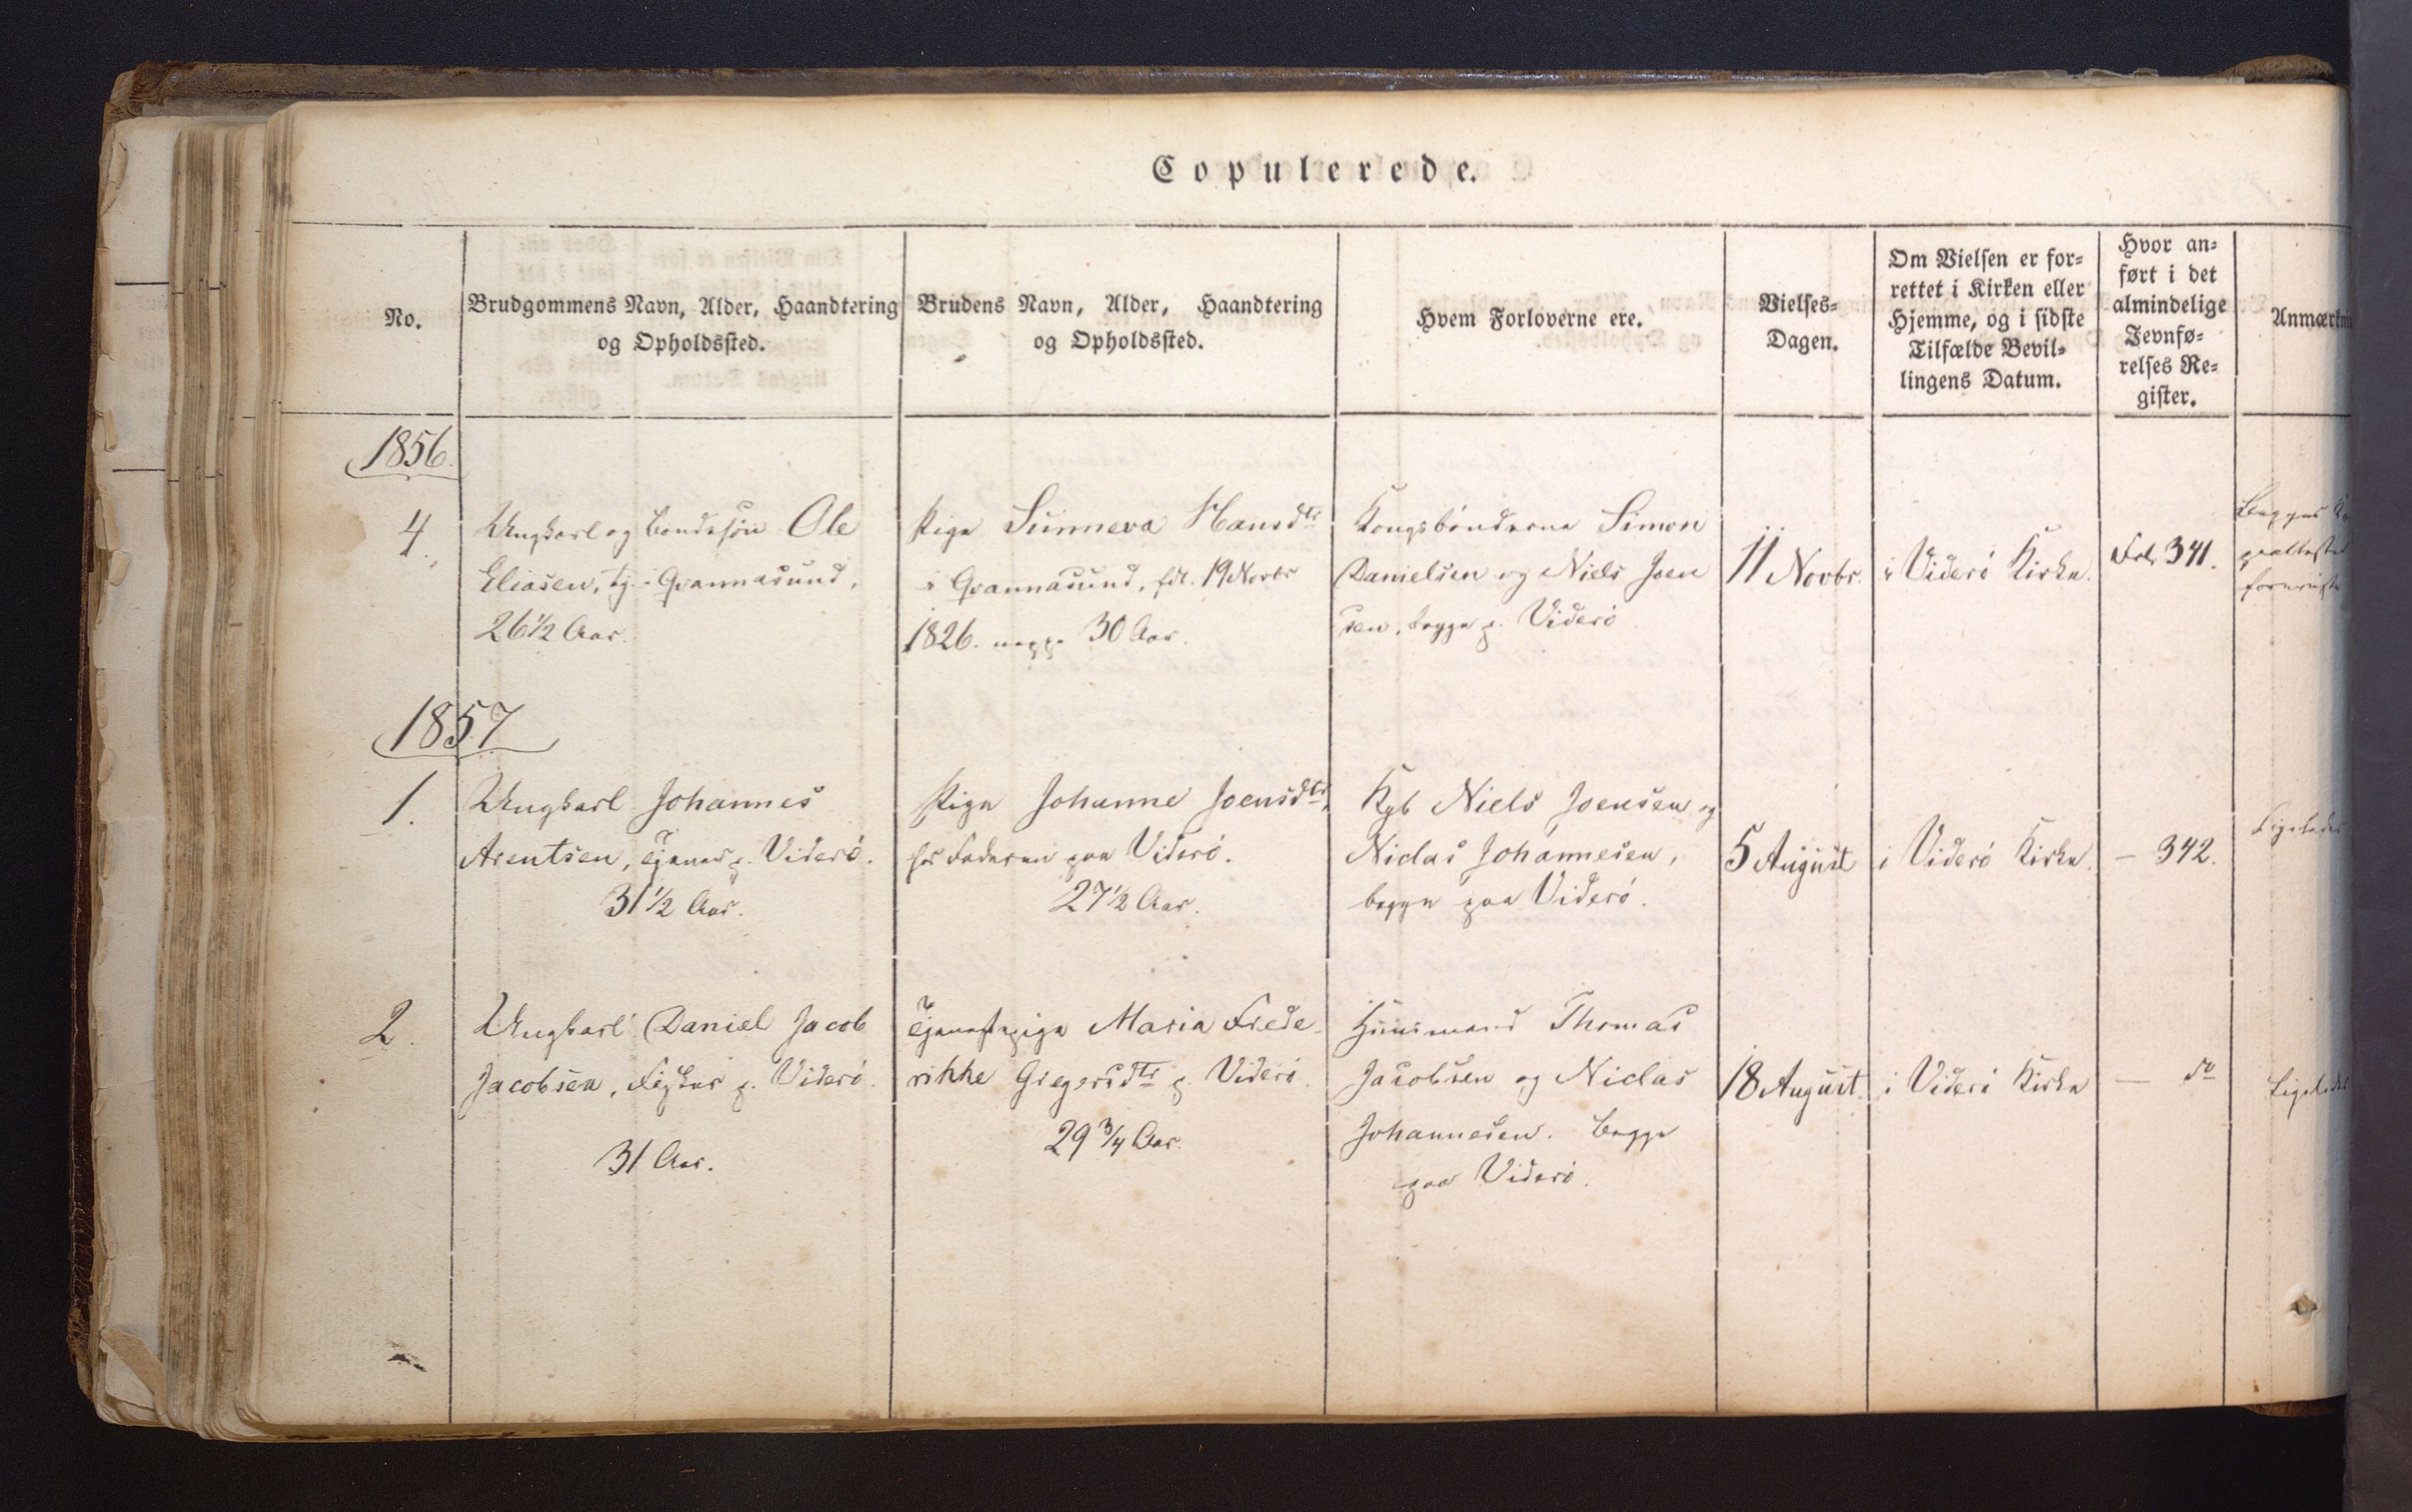 Copulerede.
No.
Brudgommens Navn, Alder, Haandtering
og Opholdssted.
Brudens Navn, Alder, Haandtering
og Opholdssted.
Hvem Forloverne ere.
Vielses-
Dagen.
Om Vielsen er for-
rettet i Kirken eller
Hjemme, og i sidste
Tilfælde Bevil-
lingens Datum.
Hvor an-
ført i det
almindelige
Jevnfø-
relses Re-
gister.
Anmærkn
1856.
4.
Ungkarl og Bondesøn Ole
Eliasen, tj. i Qvannasund,
26 1/2 Aar.
Pige Sunneva Hansdtr
i Qvannasund, fdt. 19 Novbr
1826. neppe 30 Aar.
Kongsbønderne Simon
Danielsen og Niels Joen
sen, begge p. Viderö
11 Novbr.
i Viderö Kirke.
Fol. 341.
Begges
1857
1.
Ungkarl Johannes
Arentsen, tjener p. Viderö.
31 1/2 Aar.
Pige Johanne Joensdtr,
hos Faderen paa Viderö.
27 1/2 Aar.
Kgb Niels Joensen og
Niclas Johannesen,
begge paa Viderö.
5 August
i Viderö Kirke.
— 342.
Ligeledes
2.
Ungkarl Daniel Jacob
Jacobsen, Fisker p. Viderö.
31 Aar.
Tjenestepige Maria Frede-
rikke Giegersdtr p. Viderö.
29 3/4 Aar.
Huusmand Thomas
Jacobsen og Niclas
Johannesen. begge
paa Viderö.
18 August.
i Viderö Kirke
— do
Ligeledes